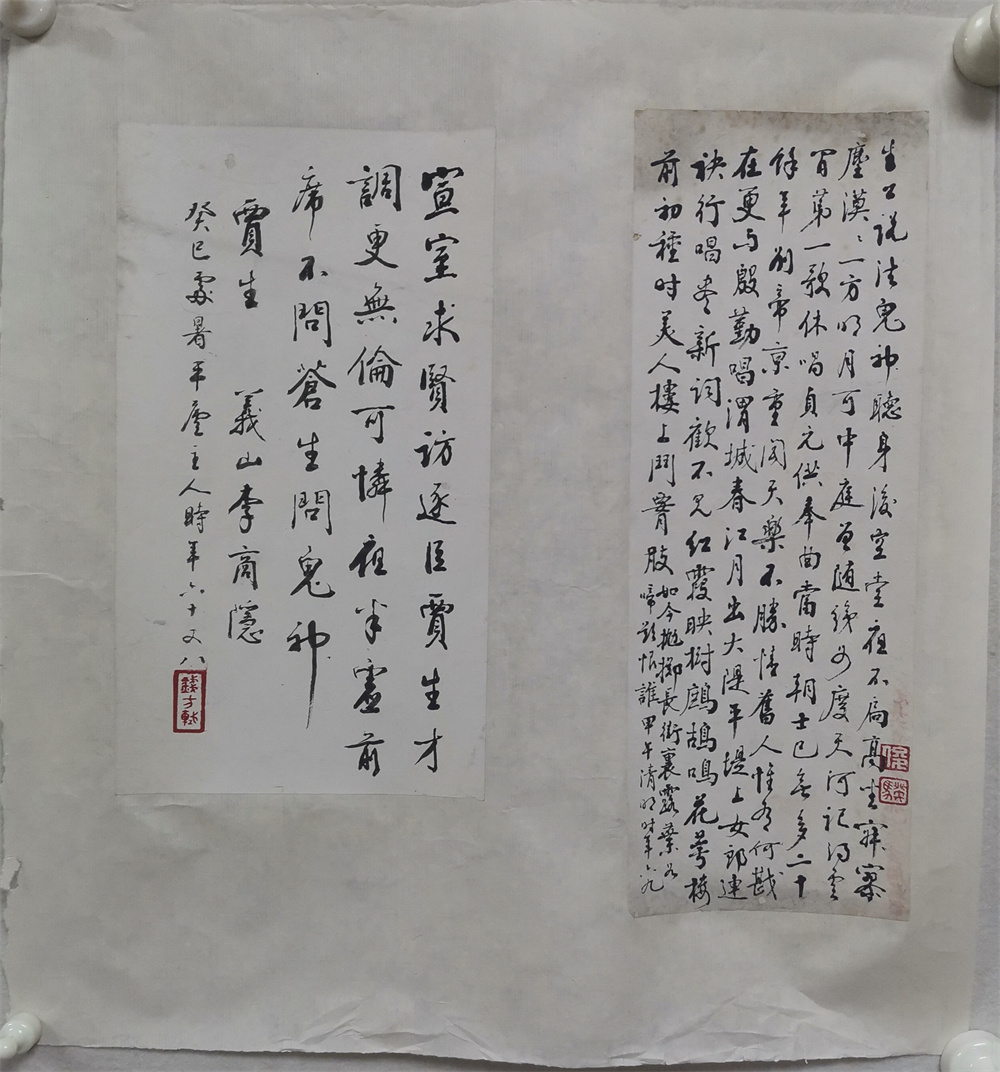 生公說法鬼神聽身後空堂夜不扃高坐寂寞
塵漠〻一方明月可中庭曾随織女度天河記得雲
間第一歌休唱貞元供奉曲當時朝士已無多二十
餘年別帝京重闻天樂不勝情舊人惟有何戡
在更与殷勤唱渭城春江月出大隄平堤上女郎連
袂行唱尽新詞歡不见紅霞映樹鷓鴣鳴花萼樓
前初種时美人樓上鬥腰肢
如今抛擲長街裏露葉如
啼欲恨誰甲午清明时年六九
宣室求賢訪逐臣賈生才
調更無倫可憐夜半虛前
席不問蒼生問鬼神
賈生 義山李商隱
癸巳處暑平廬主人時年六十又八
錢方軾